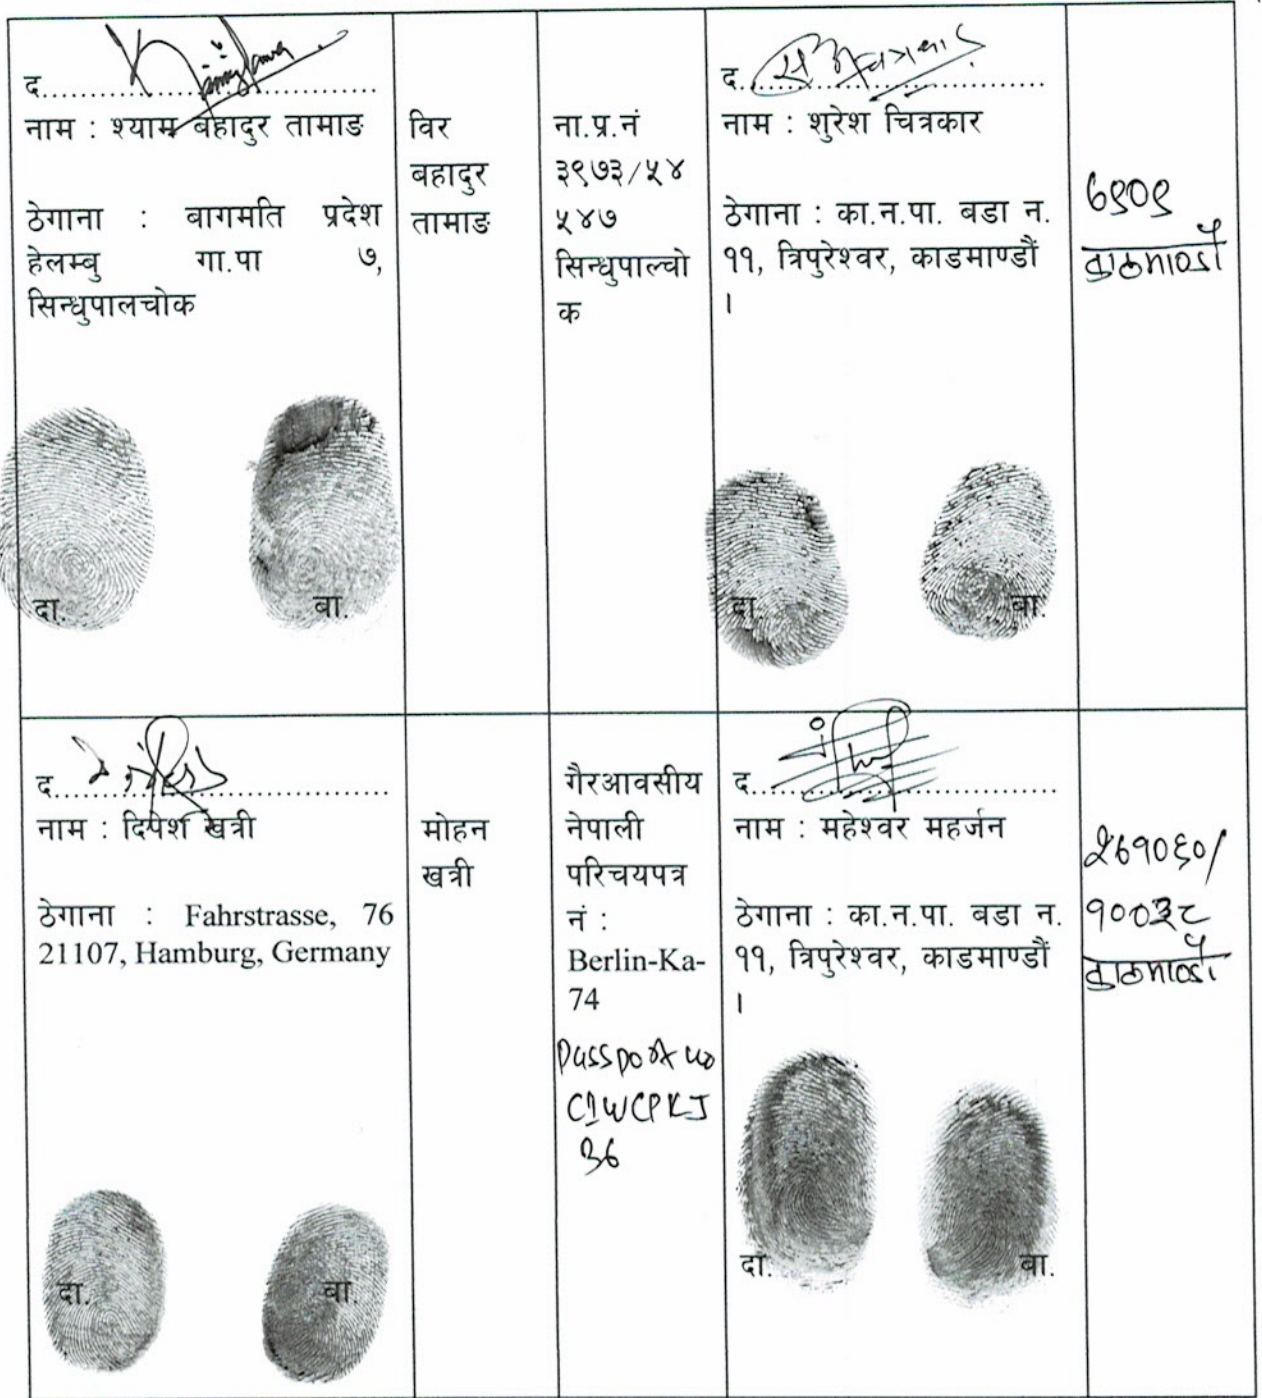 द..............................
नाम : श्याम बहादुर तामाङ
ठेगाना : बागमति प्रदेश
हेलम्बु गा.पा ७,
सिन्धुपालचोक
दा. बा.
विर
बहादुर
तामाङ
ना.प्र.नं
३९७३/५४
५४७
सिन्धुपाल्चो
क
द..............................
नाम : शुरेश चित्रकार
ठेगाना : का.न.पा. बडा न.
११, त्रिपुरेश्वर, काडमाण्डौं
।
दा. बा.
काठमाडौं
द..............................
नाम : दिपेश खत्री
ठेगाना : Fahrstrasse, 76
21107, Hamburg, Germany
दा. बा.
मोहन
खत्री
गैरआवसीय
नेपाली
परिचयपत्र
नं :
Berlin-Ka-
74
Passport no
द..............................
नाम : महेश्वर महर्जन
ठेगाना : का.न.पा. बडा न.
११, त्रिपुरेश्वर, काडमाण्डौं
।
दा. बा.
काठमाडौं